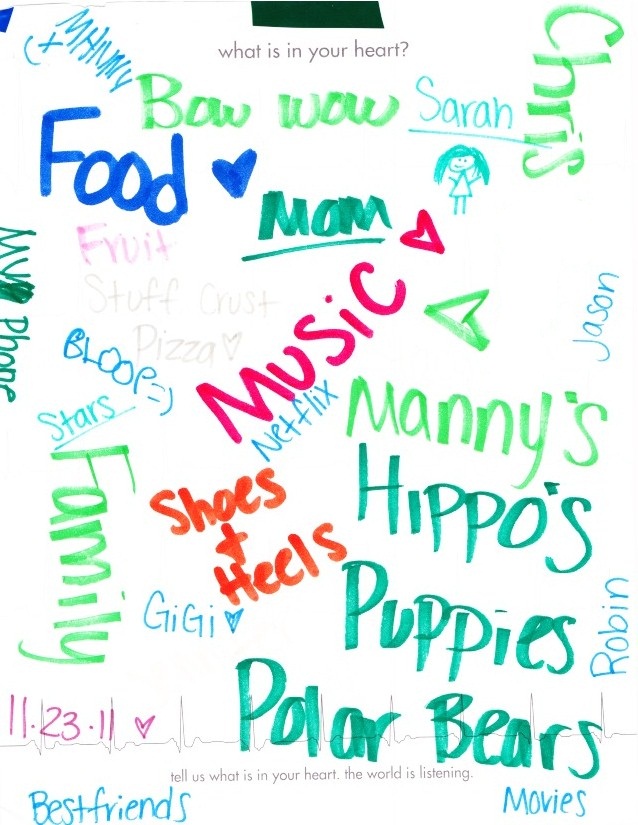 what is in your heart?
Bow wow
Sarah
Chris
Food
Mom
Fruit
Stuff Crust
Pizza
Music
My Phone
Jason
BLOOP =)
Stars
Netflix
Manny's
Family
Shoes
+
Heels
Hippo's
GiGi
Puppies
Robin
11.23.11
Polar Bears
tell us what is in your heart. the world is listening.
Bestfriends
Movies